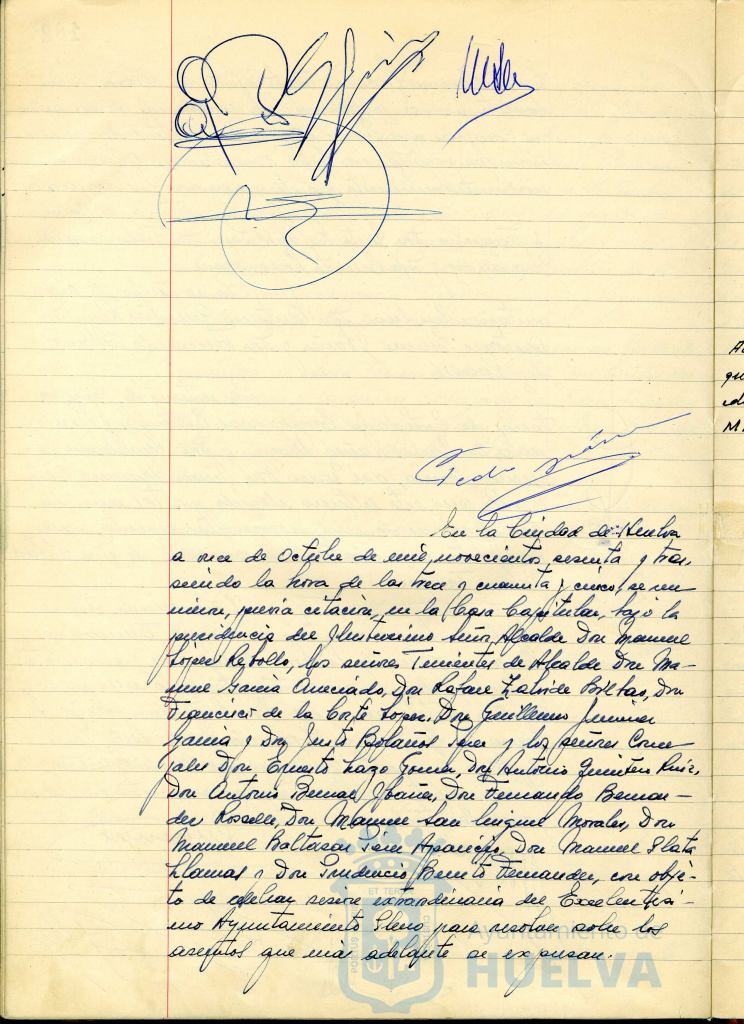 En la Ciudad de Huelva
a once de Octubre de mil novecientos sesenta y tres,
siendo la hora de las trece y cuarenta y cinco, se reu-
nieron, previa citación, en la Casa Capitular, bajo la
presidencia del Ilustrísimo Señor Alcalde Don Manuel
López Rebollo, los señores Tenientes de Alcalde Don Ma-
nuel García Aneciado, Don Rafael Zalvide Bilbao, Don
Francisco de la Corte López, Don Guillermo Jiménez
García y Don Justo Bolaños Pérez y los señores Conce-
jales Don Ernesto Lazo Gomez, Don Antonio Quintero Ruiz,
Don Antonio Bernal Ibañez, Don Fernando Bernan-
dez Roselló, Don Manuel San Miguel Morales, Don
Manuel Baltasar Pérez Aparicio, Don Manuel Plata
Llamas y Don Prudencio Benito Fernandez, con obje-
to de celebrar sesión extraordinaria del Excelentísi-
mo Ayuntamiento Pleno para resolver sobre los
asuntos que más adelante se expresan.
Ayuntamiento de
HUELVA